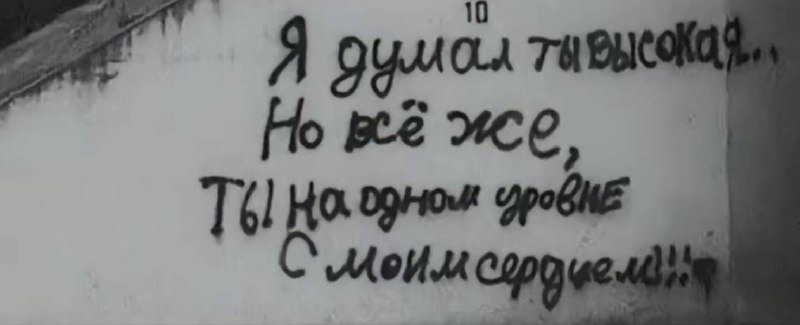 10
Я думал ты высокая..
Но всё же,
Ты на одном уровне
с моим сердцем!!!